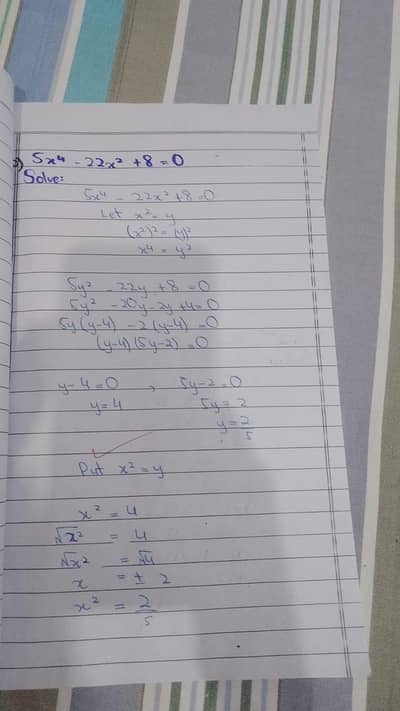 5x⁴ - 22x² + 8 = 0
Solve:
5x⁴ - 22x² + 8 = 0
Let x² = y
(x²)² = (y)²
x⁴ = y²
5y² - 22y + 8 = 0
5y² - 20y - 2y + 4 = 0
5y(y-4) - 2(y-4) = 0
(y-4)(5y-2) = 0
y-4 = 0 , 5y-2 = 0
y = 4 5y = 2
y = 2/5
Put x² = y
x² = 4
√x² = 4
√x² = √4
x = ± 2
x² = 2/5